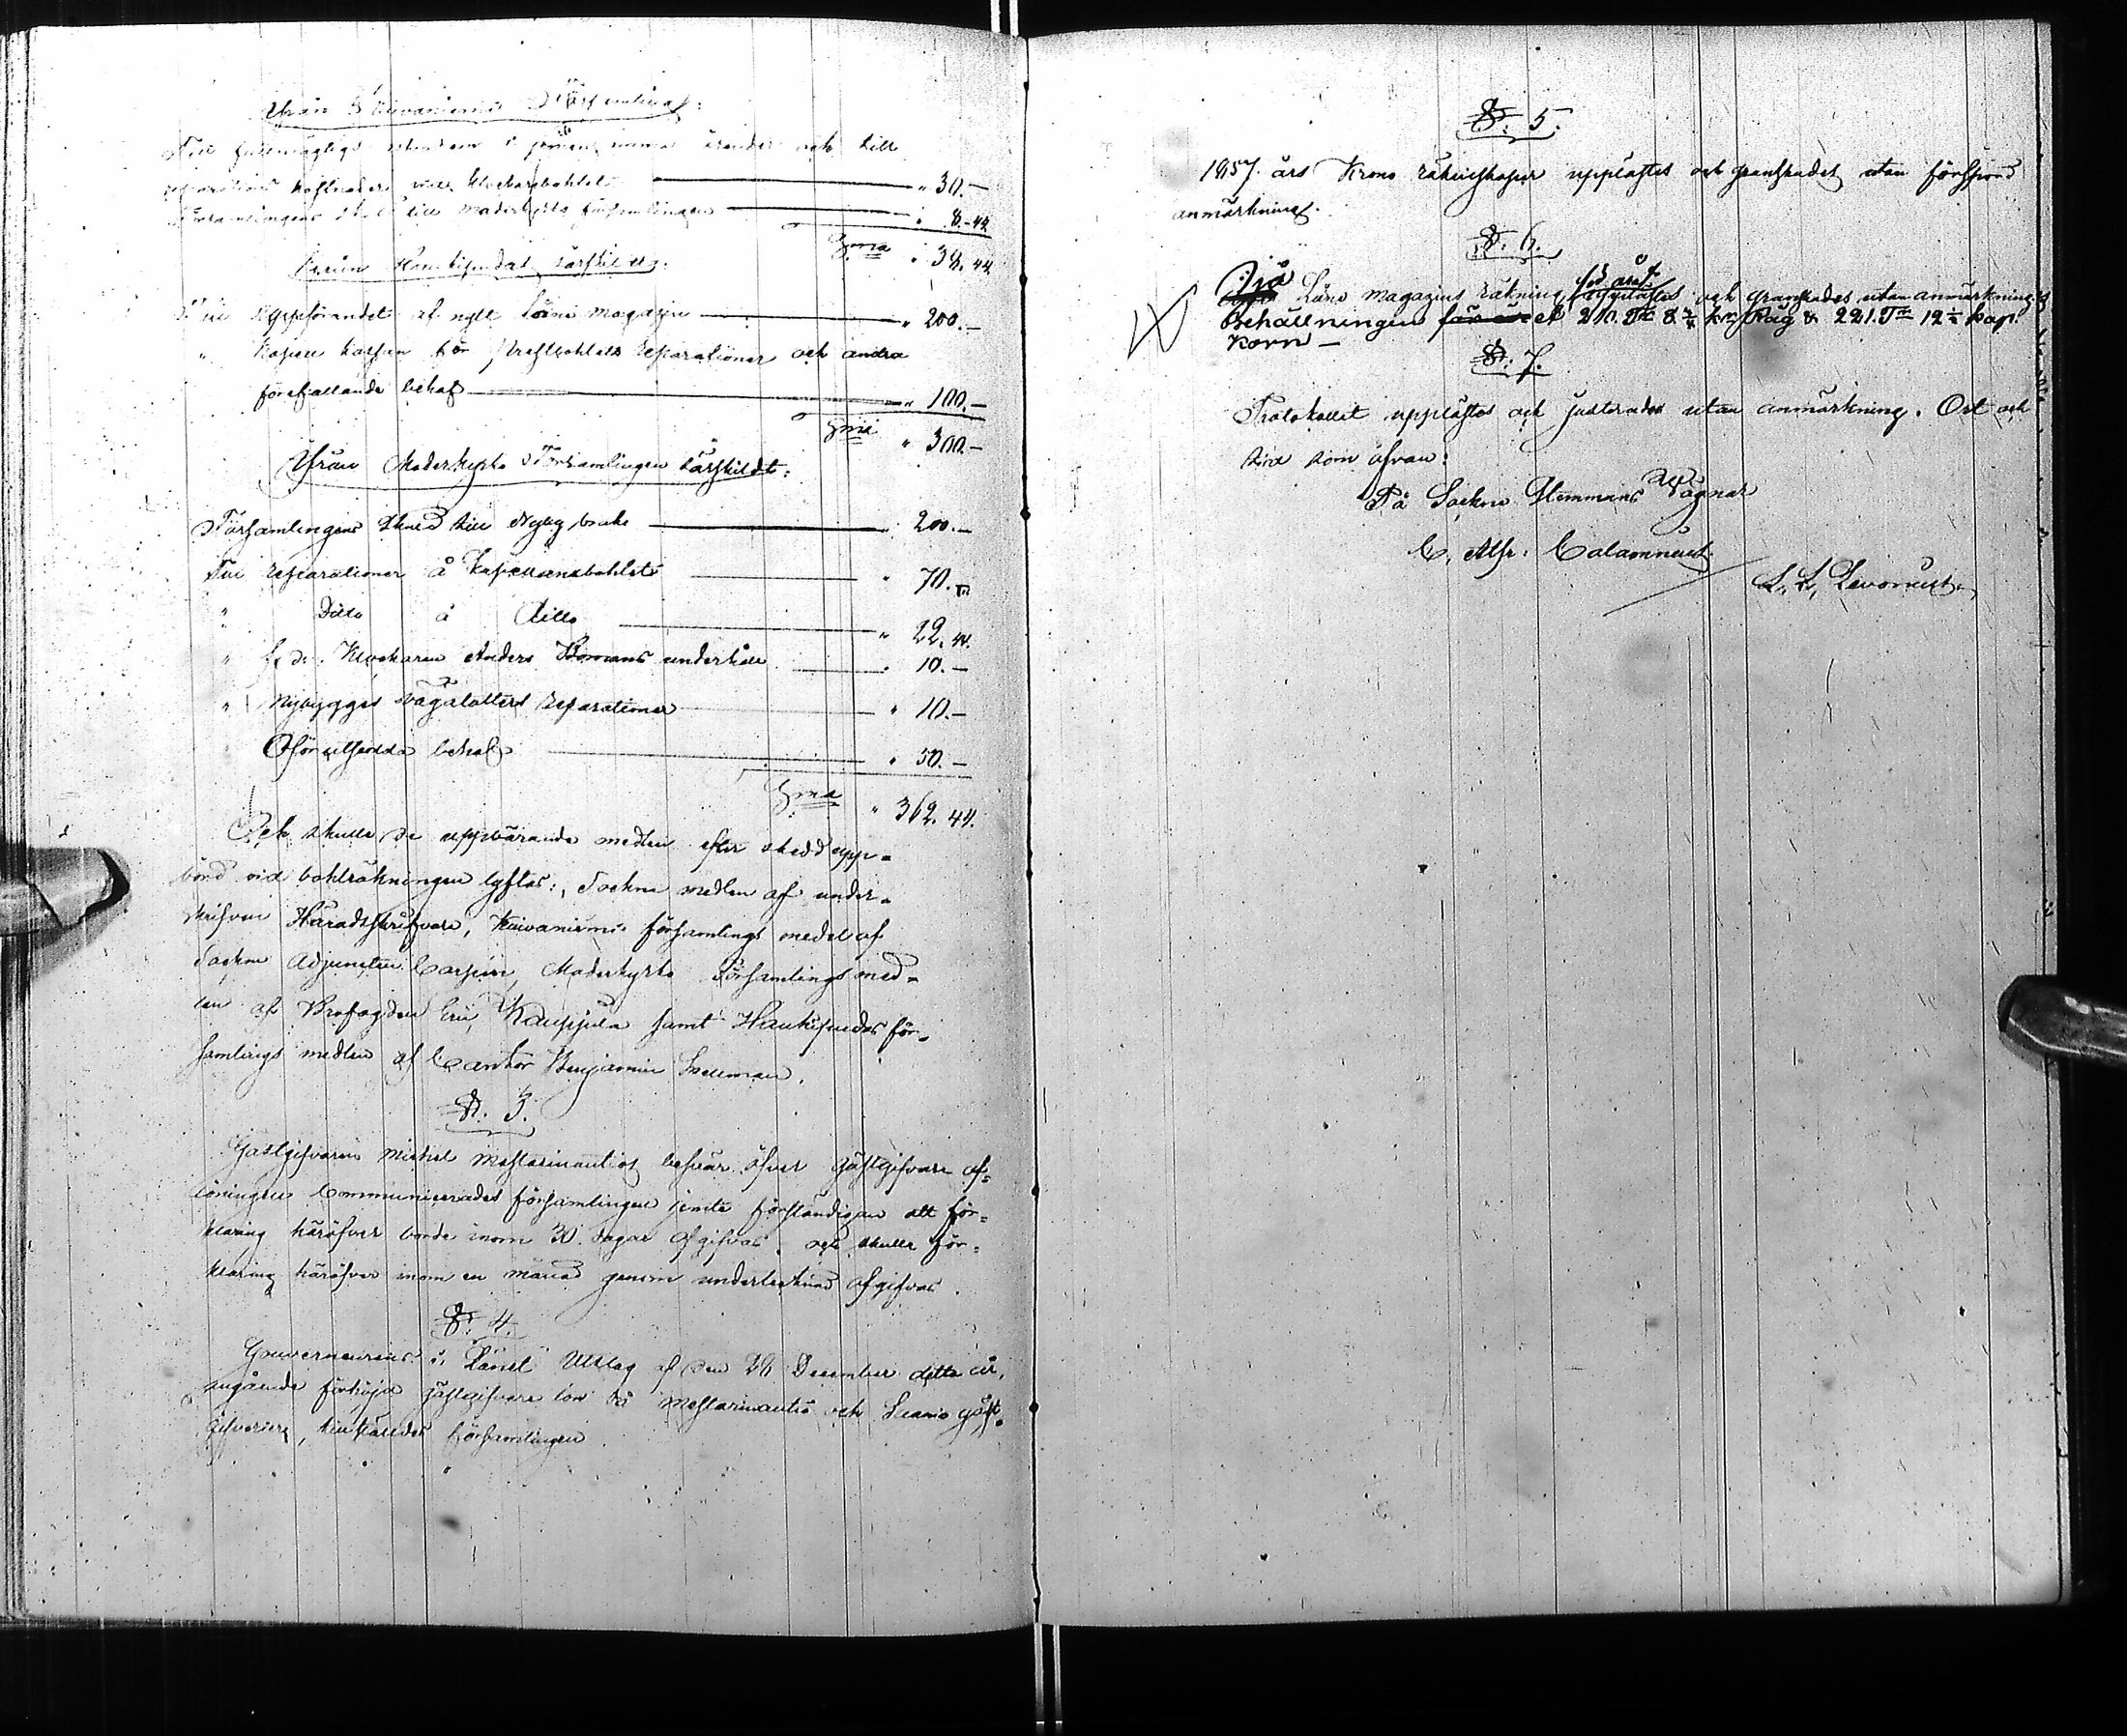 Från Kuivaniemi Församling:
Till fullmägtiges i ärender och till
reparations kostnader vid Klockarebohlet " 30.–
Församlingens till Moderkyrko församlingen " 8.-44.
Sma " 38.44.
Från Haukipudas särskildt:
Till Uppförandet af nytt Låne magazin " 200.–
" Kassan för Prestbohlets reparationer och andra
förefallande behof " 100.–
Sma " 300.–
Från Moderkyrko Församlingen särskildt:
Församlingens till " 200.–
Till reparationer å Kapellansbohlet " 70.
" Ditto å ditto " 22.44.
" f. d. Klockaren Anders Bomans underhåll " 10.–
" Nybygges reparationer " 10.–
" Oförutsedda behof " 50.–
Sma " 362.44.
Och skulle de uppbärande medlen efter skedd upp-
börd vid bohlräkningen lyftas: Sockne medlen af under-
skrifven Häradsskrifvare, Kuivaniemi församlings medel af
Sockne Adjuncten Carpén, Moderkyrko Församlings med-
len af Profogden Eric Kauppila samt Haukipudas för-
samlings medlen af Cantor Benjamin Snellman.
§. 3.
Gästgifvaren Mickel Mestarinautios besvär öfver gästgifvare af-
löningen Communicerades församlingen jemte förständigan att för-
klaring häröfver borde inom 30 dagar afgifvas, och skulle för-
klaring häröfver inom en månad genom undertecknad afgifvas.
§. 4.
Gouverneurens i Länet Utslag af den 28 December detta år,
angående förhöjd gästgifvare lön då Mestarinautio och gäst-
gifverier, kunfördes församlingen.
§. 5.
1857. års Krono räkenskaper upplästes och granskades utan förspord
anmärkning.
§. 6.
Ijo Låne magazins räkning upplästes och granskades utan anmärkning
Behållningen 210. Tr 8 kr Råg & 221. Tr 12 kap.
Korn –
§. 7.
Protokollet upplästes och justerades utan anmärkning. Ort och
tid som ofvan:
På Sockne Hemmans Wägnar
C. Alfr: Calamnius.